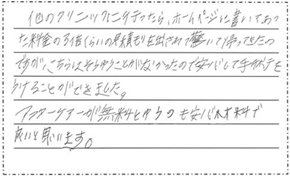 他のクリニックに行ったら、ホームページに書いてあっ
た料金の3倍くらいの見積もりを出されて驚いて帰ってきたの
ですが、こちらはそういうことがなかったので安心して手術を
うけることができました。
アフターケアーが無料というのも安心材料で
良いと思います。